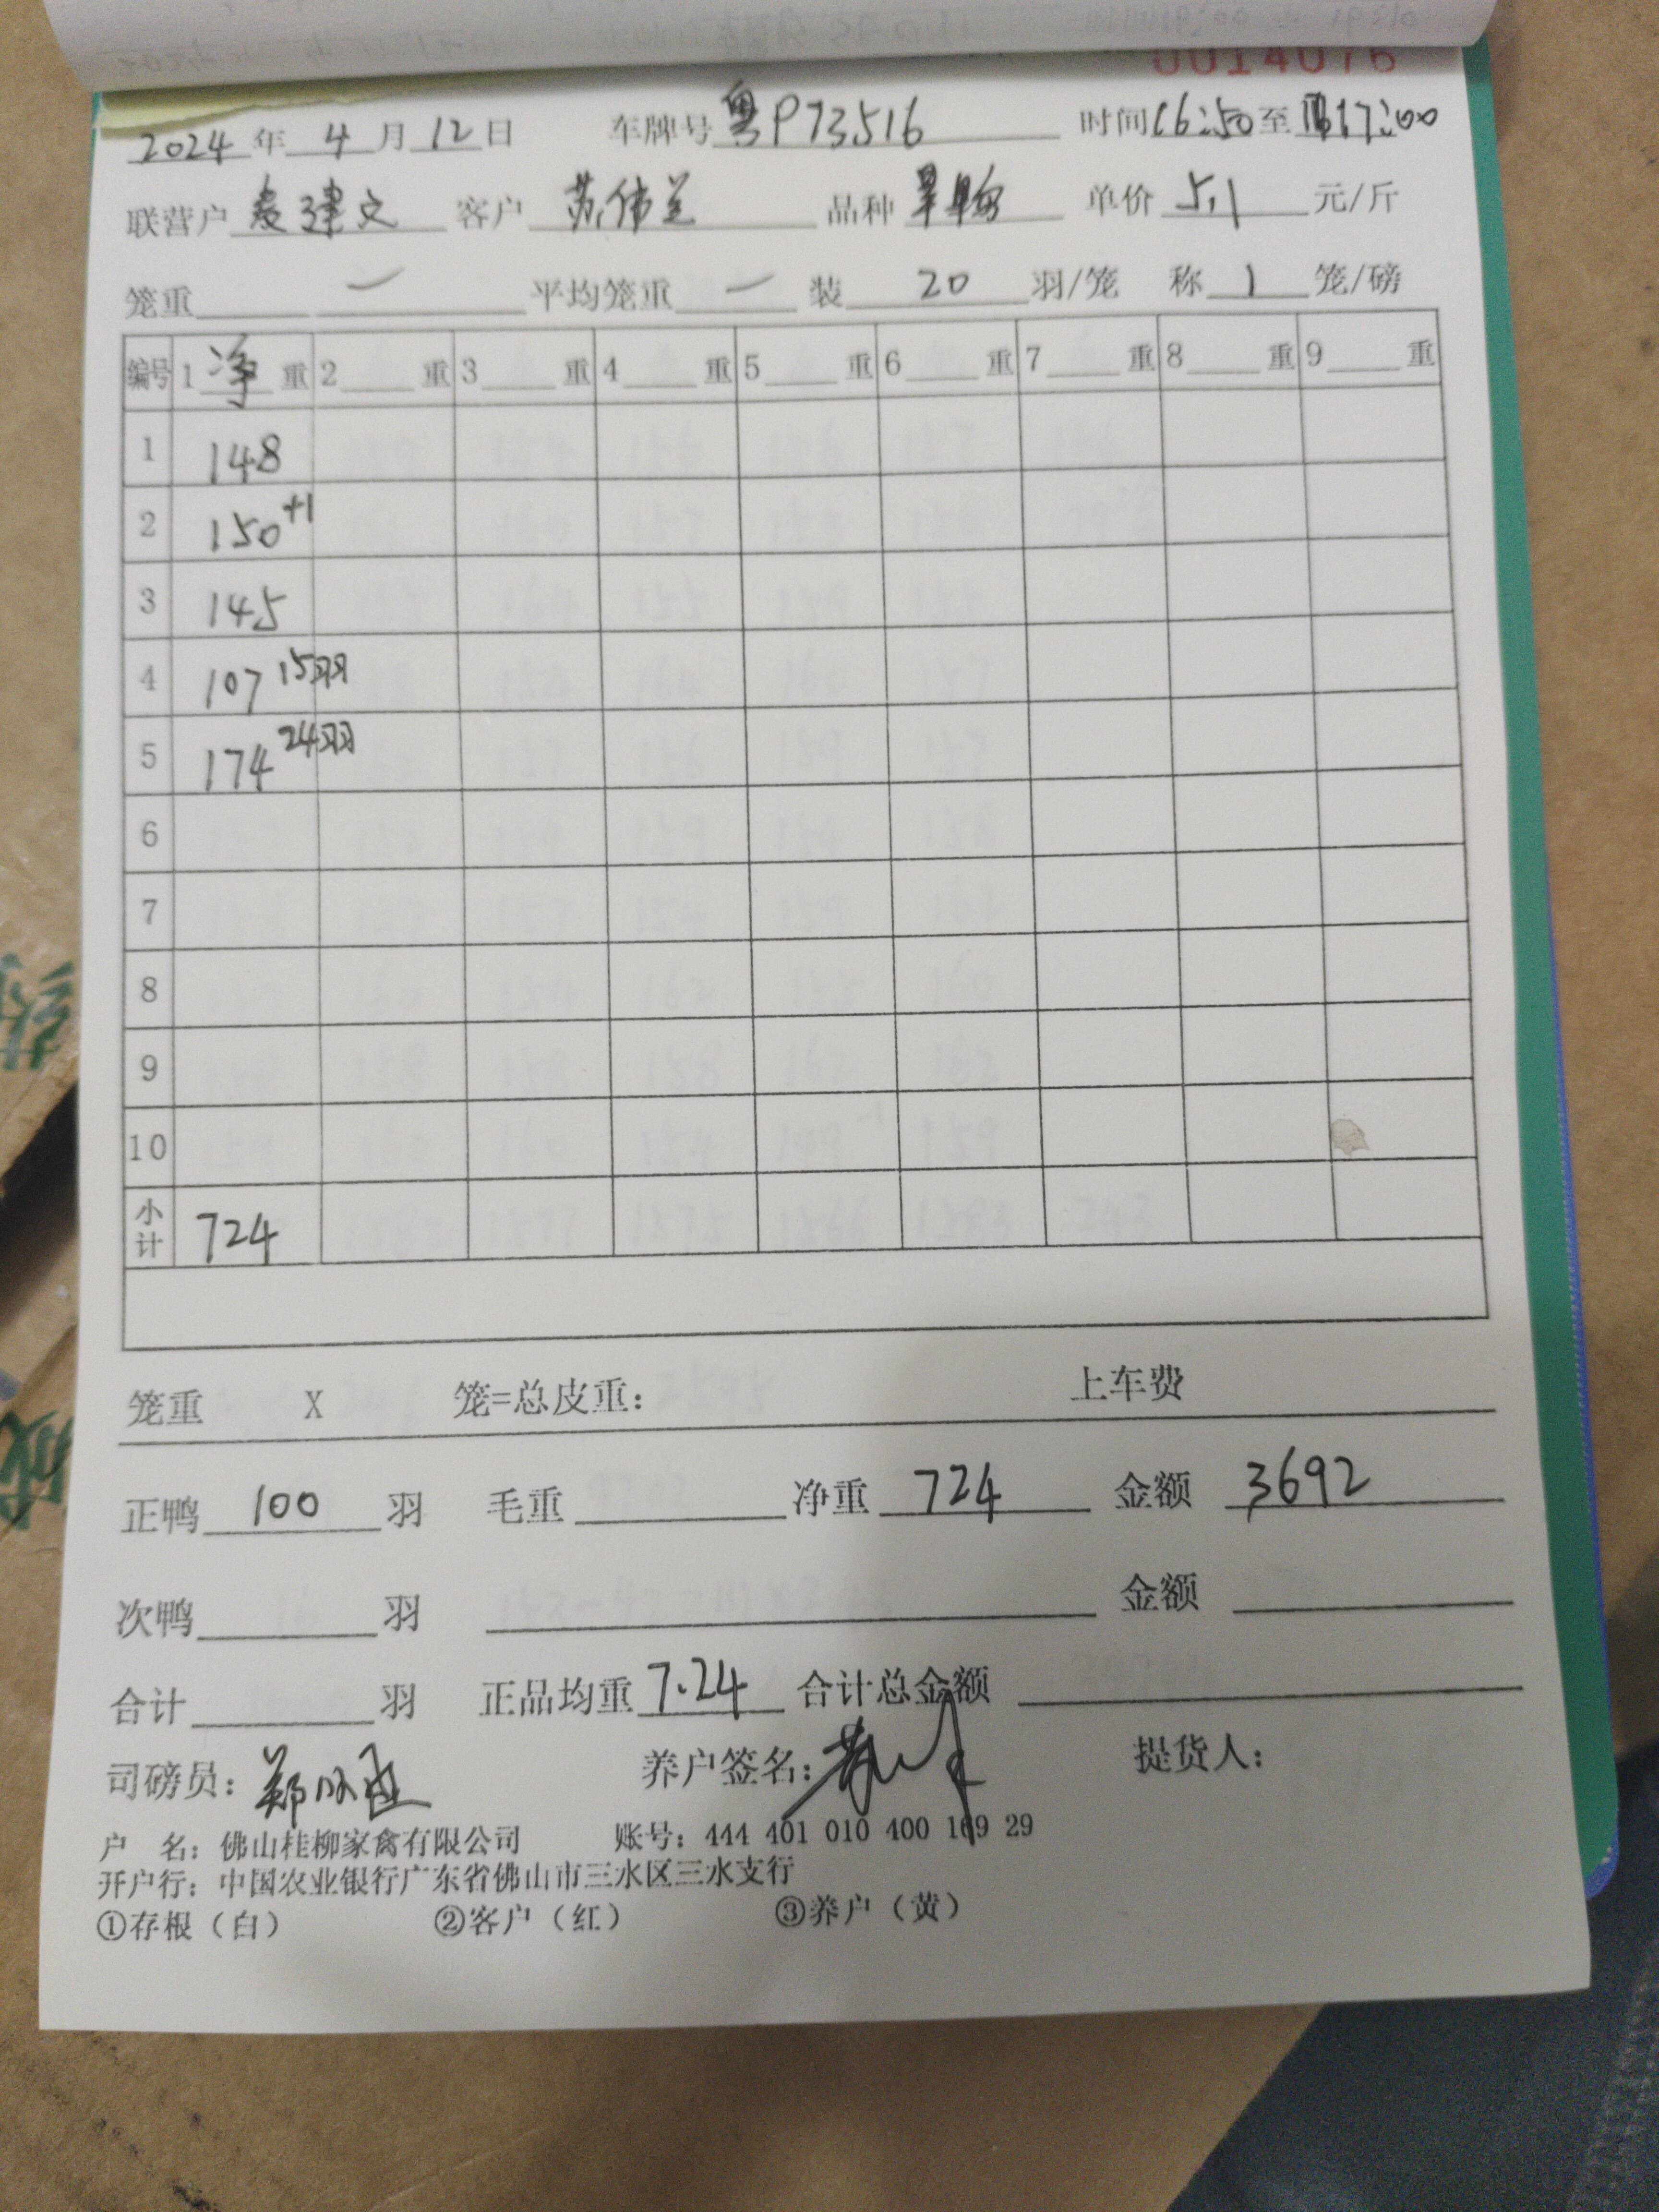 0014076
2024年4月12日 车牌号 粤P73516 时间16:50至17:00
联营户 麦建文 客户 苏伟兰 品种 单价 5.1 元/斤
笼重 一 平均笼重 一 装 20 羽/笼 称 1 笼/磅
编号 1 净 重 2 重 3 重 4 重 5 重 6 重 7 重 8 重 9 重
1 148
2 150+1
3 145
4 107 15羽
5 174 24羽
6
7
8
9
10
小计 724
笼重 X 笼=总皮重: 上车费
正鸭 100 羽 毛重 净重 724 金额 3692
次鸭 羽 金额
合计 羽 正品均重 7.24 合计总金额
司磅员: 郑 养户签名: 提货人:
户 名: 佛山桂柳家禽有限公司 账号: 444 401 010 400 169 29
开户行: 中国农业银行广东省佛山市三水区三水支行
①存根（白） ②客户（红） ③养户（黄）